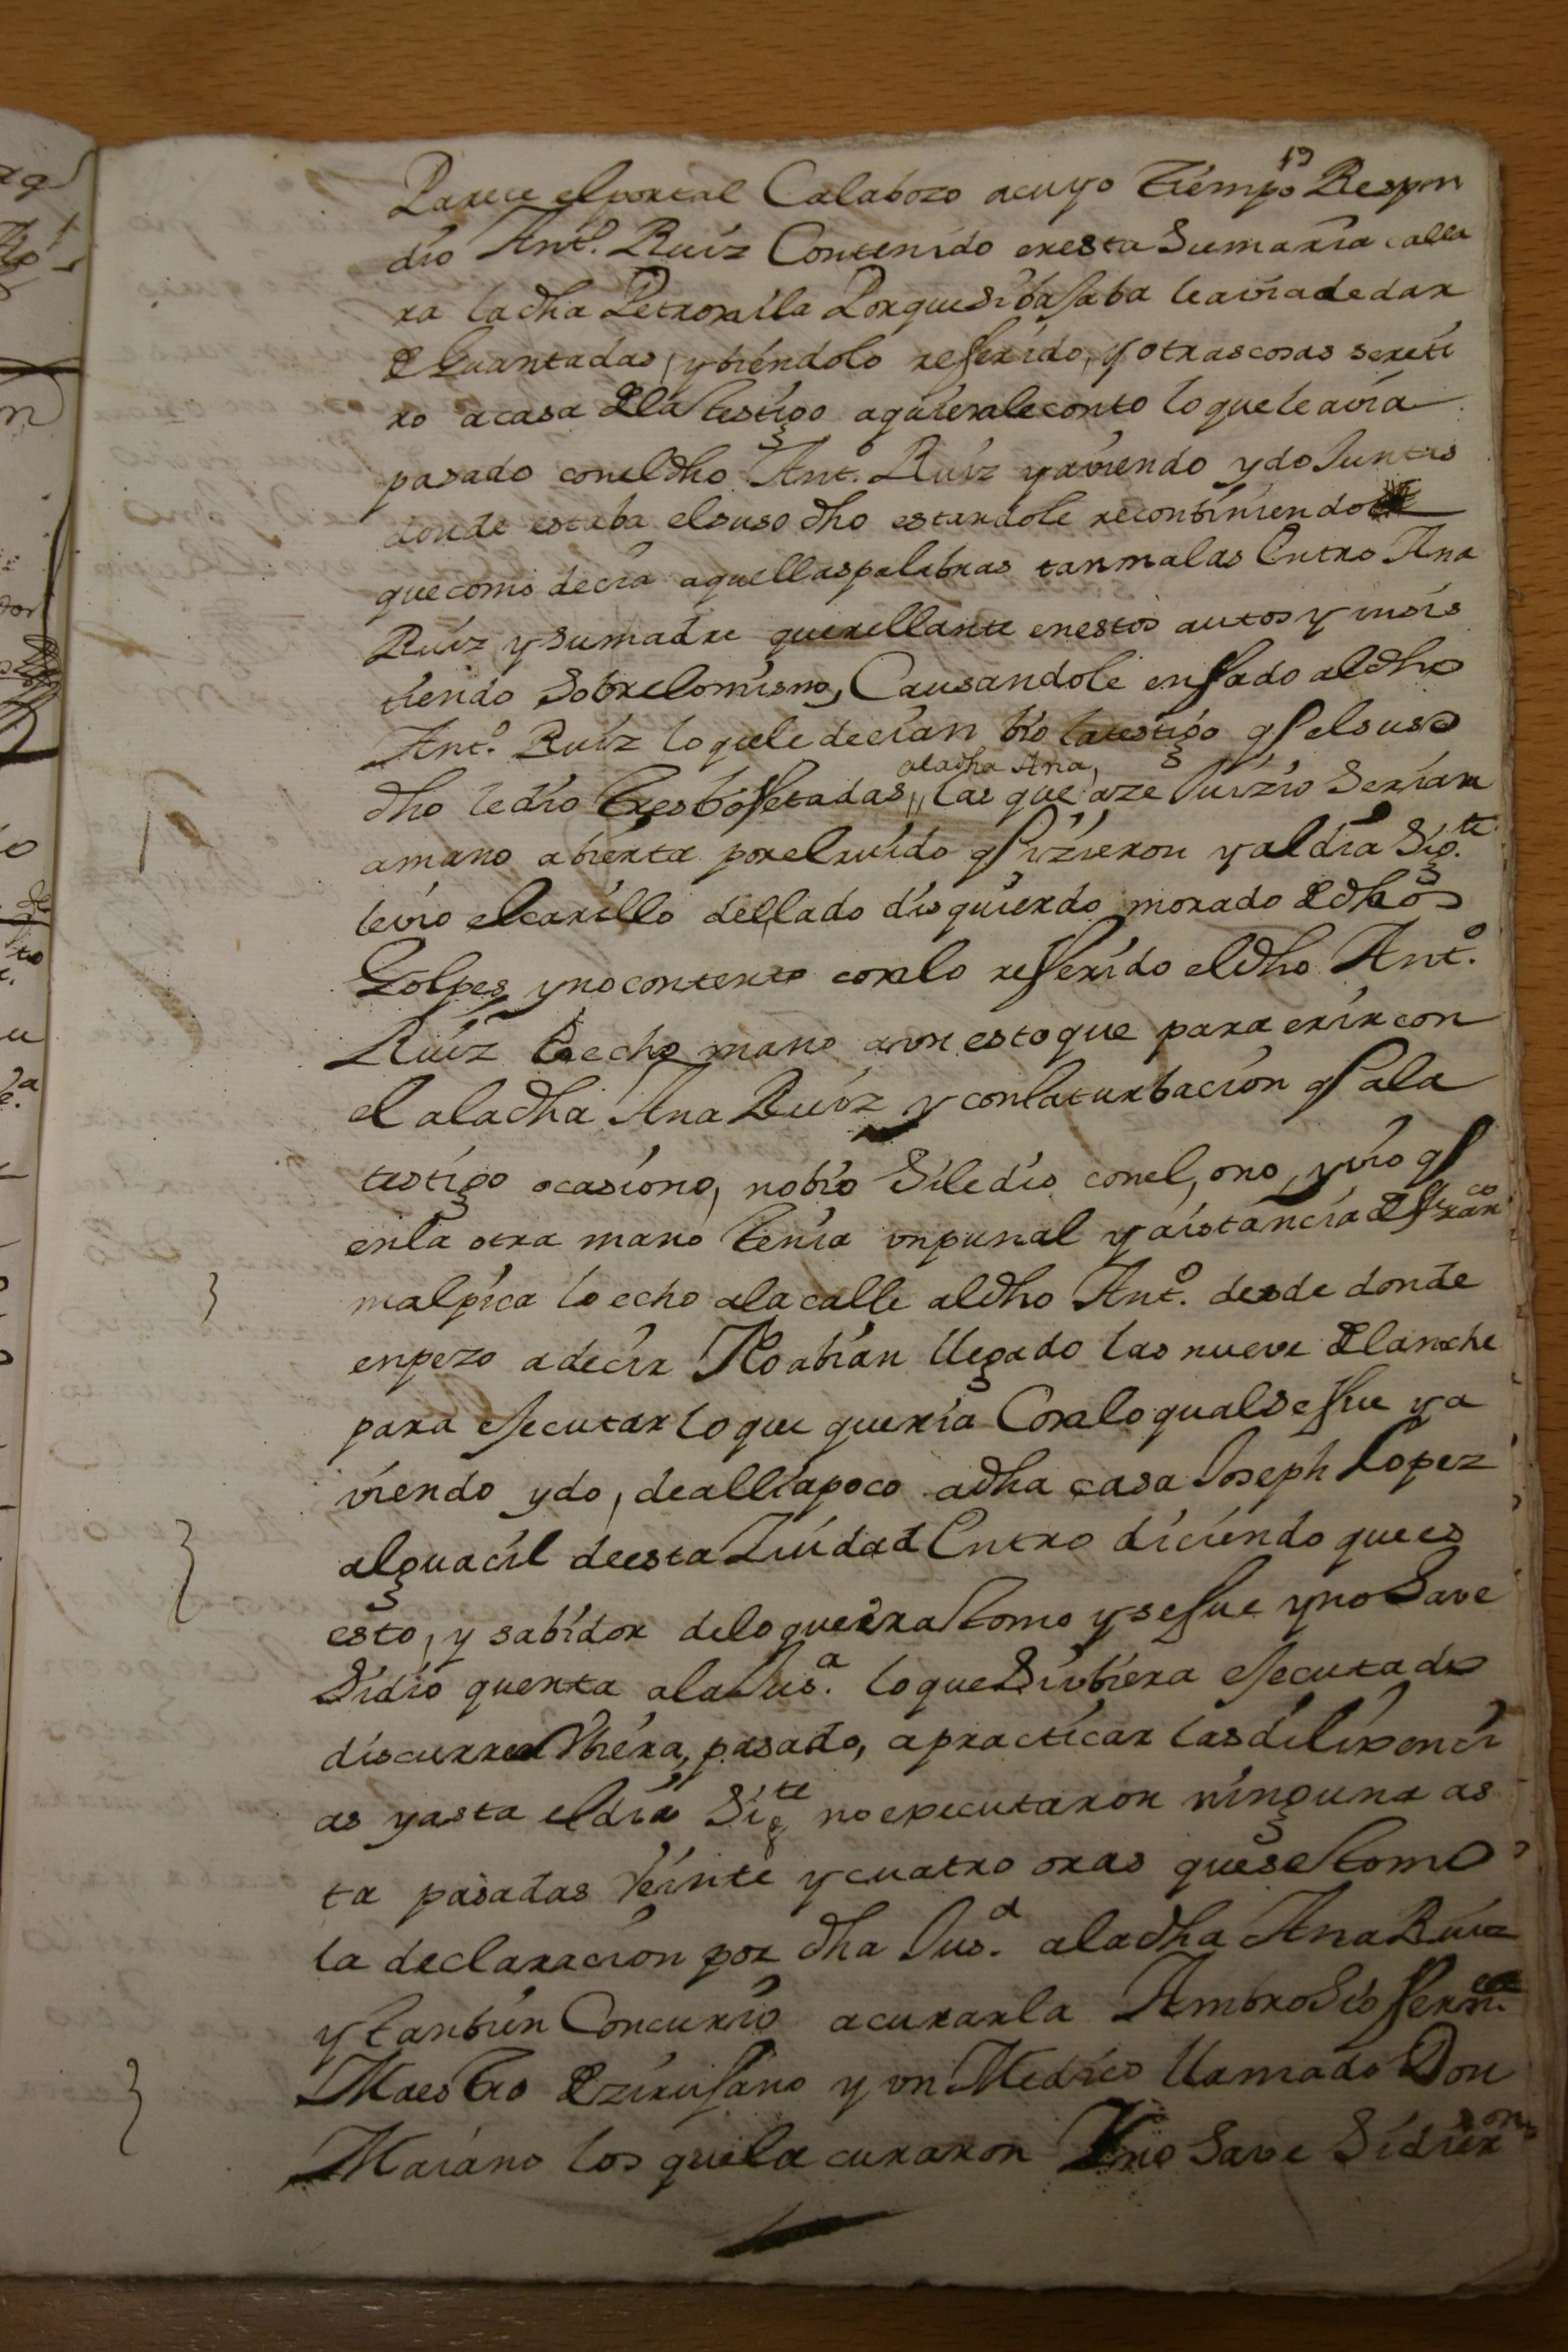 19
Parece el portal Calabozo acuyo tiempo Respon
dio Antº. Ruiz Contenido enesta Sumaria calla
ra ladha Petronila Porque Sibasaba leavia de dar
de Guantadas, y biendolo referido, y otras cosas sereti
ro acasa dela testigo aquienle conto loque leavia
pasado coneldho Antº. Ruiz y aviendo ydo Juntas
donde estaba elsuso dho estandole recontiniendo
que como decia aquellas palabras tan malas Entro Ana
Ruiz y Sumadre querellante enestos autos y insis
tiendo Sobrelomismo, Causandole enfado aldho
Antº. Ruiz loquele decian bio latestigo q elsuso
aladha Ana,
dho ledio tres bofetadas,, las que aze Juizio Serian
amano abierta porelruido q izieron y aldia Sigte.
levio elcarillo dellado disquierdo morado de dhos
Golpes y nocontento conlo referido eldho Antº.
Ruiz echo mano aun estoque para erir con
el aladha Ana Ruiz y conlaturbacion q ala
testigo ocasiono, nobio Siledio conel, ono, y vio q
enla otra mano tenia unpunal y aistancia de Franco
malpica lo echo alacalle aldho Antº. desde donde
enpezo adecir No abian llegado las nueve dela noche
para ejecutar loque queria Conloqual se fue y a
viendo ydo, dealliapoco adha casa Joseph Lopez
alguacil deesta Ziudad Entro diciendo que es
esto, y sabidor deloqueera tomo y sefue y no Save
Sidio quenta alaJusa. loque Siubiera ejecutado
discurre Ubiera, pasado, apracticar las dilixenci
as y asta eldia Sigte no executaron ninguna as
ta pasadas Veinte y cuatro oras quese tomo
la declaracion por dha Jusa. aladha Ana Ruiz
y tanbien Concurio acurarla Ambrosio
Maestro de zirujano y un Medico llamado Don
Maiano los quela curaron Y no Save Sidieron